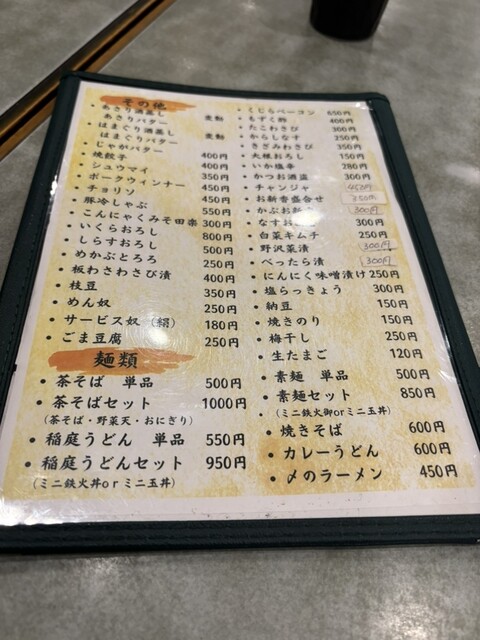 その他
・あさり酒蒸し
あさりバター 変動
・はまぐり酒蒸し
はまぐりバター 変動
・じゃがバター
・焼餃子 400円
・シュウマイ 400円
・ポークウィンナー 350円
・チョリソ 450円
・豚冷しゃぶ 550円
・こんにゃくみそ田楽 300円
・いくらおろし 800円
・しらすおろし 500円
・めかぶとろろ 250円
・板わさわさび漬 400円
・枝豆 350円
・めん奴 250円
・サービス奴(絹) 180円
・ごま豆腐 250円
麺類
・茶そば 単品 500円
・茶そばセット 1000円
(茶そば・野菜天・おにぎり)
・稲庭うどん 単品 550円
・稲庭うどんセット 950円
(ミニ鉄火丼orミニ玉丼)
・くじらベーコン 650円
・もずく酢 400円
・たこわさび 300円
・からしなす 250円
・きざみわさび 350円
・大根おろし 150円
・いか塩辛 280円
・かつお酒盗 300円
・チャンジャ 450円
・お新香盛合せ 750円
・かぶお新 300円
・なすお新 300円
・白菜キムチ 250円
・野沢菜漬 300円
・べったら漬 300円
・にんにく味噌漬け 250円
・塩らっきょう 300円
・納豆 150円
・焼きのり 150円
・梅干し 210円
・生たまご 120円
・素麺 単品 500円
・素麺セット 850円
・(ミニ鉄火御orミニ玉丼)
・焼きそば 600円
・カレーうどん 600円
・〆のラーメン 450円